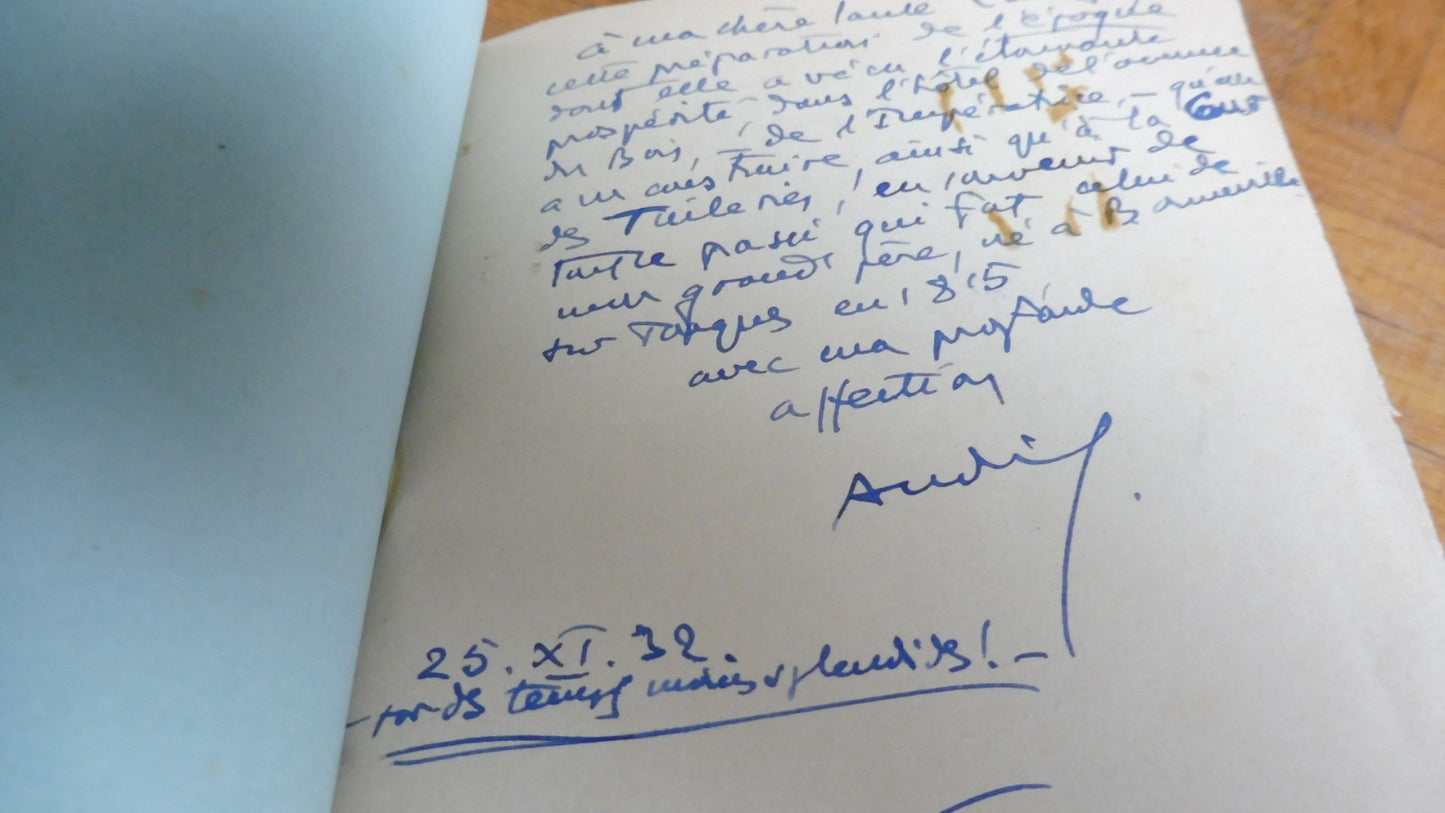 à ma chère
cette préparation de l'époque
dont elle a vécu l'étonnante
prospérité, dans l'hôtel de l'avenue
du Bois, – de l'Impératrice, –
a vu construire, ainsi qu'à la Cour
des Tuileries, en souvenir de
tout ce passé qui fut celui de
mon grand père, né à
sur Touques en 1815
avec ma profonde
affection
25. XI. 32.
– des temps moins splendides! –